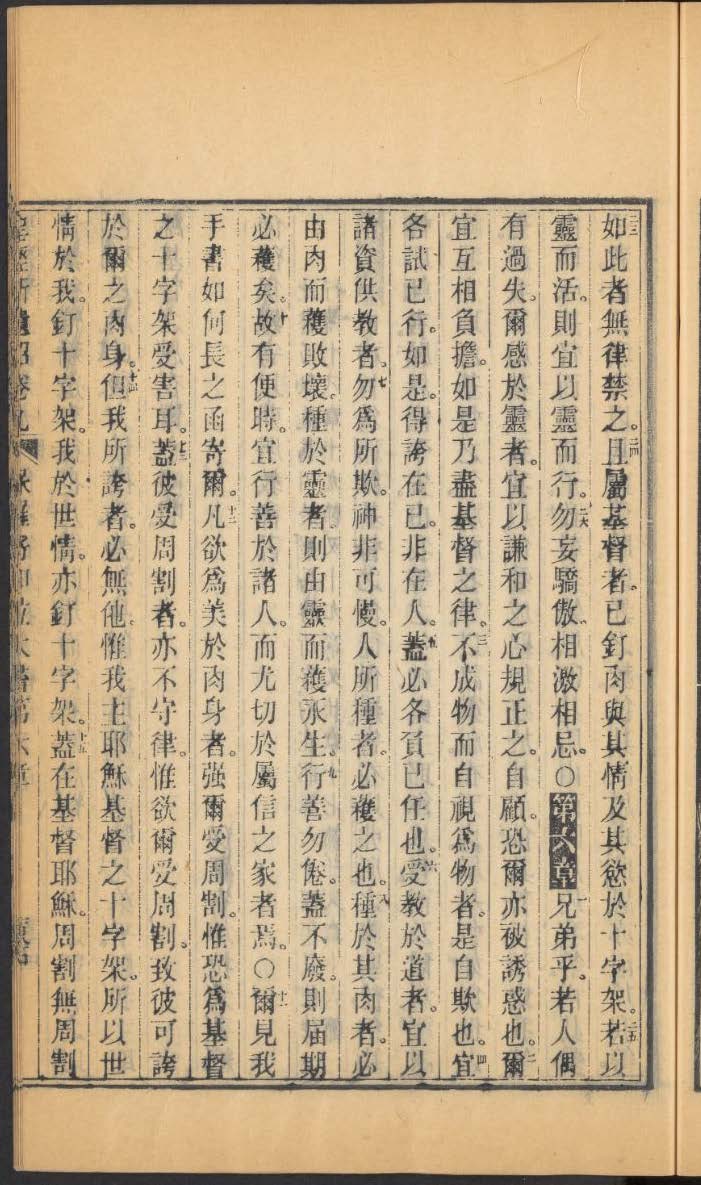 如此者無律禁之。且屬基督者。已釘肉與其情及其慾於十字架。若以
靈而活。則宜以靈而行。勿妄驕傲。相激相忌。○第六章兄弟乎。若人偶
有過失。爾感於靈者。宜以謙和之心規正之。自顧。恐爾亦被誘惑也。爾
宜互相負擔。如是乃盡基督之律。不成物而自視爲物者。是自欺也。宜
各試已行。如是。得誇在已。非在人。蓋必各負已任也。受教於道者。宜以
諸資供教者。勿爲所欺。神非可慢。人所種者。必穫之也。種於其肉者。必
由肉而穫敗壞。種於靈者。則由靈而穫永生。行善勿倦。蓋不廢。則届期
必穫矣。故有便時。宜行善於諸人。而尤切於屬信之家者焉。○爾見我
手書如何長之函寄爾。凡欲爲美於肉身者。强爾受周割。惟恐爲基督
之十字架受害耳。蓋彼受周割者。亦不守律。惟欲爾受周割。致彼可誇
於爾之肉身。但我所誇者。必無他。惟我主耶穌基督之十字架。所以世
情於我。釘十字架。我於世情。亦釘十字架。蓋在基督耶穌。周割無周割